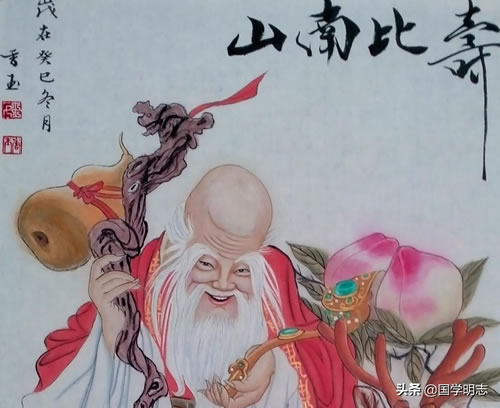 壽比南山
歲在癸巳冬月
晋玉
头条 @国学明志